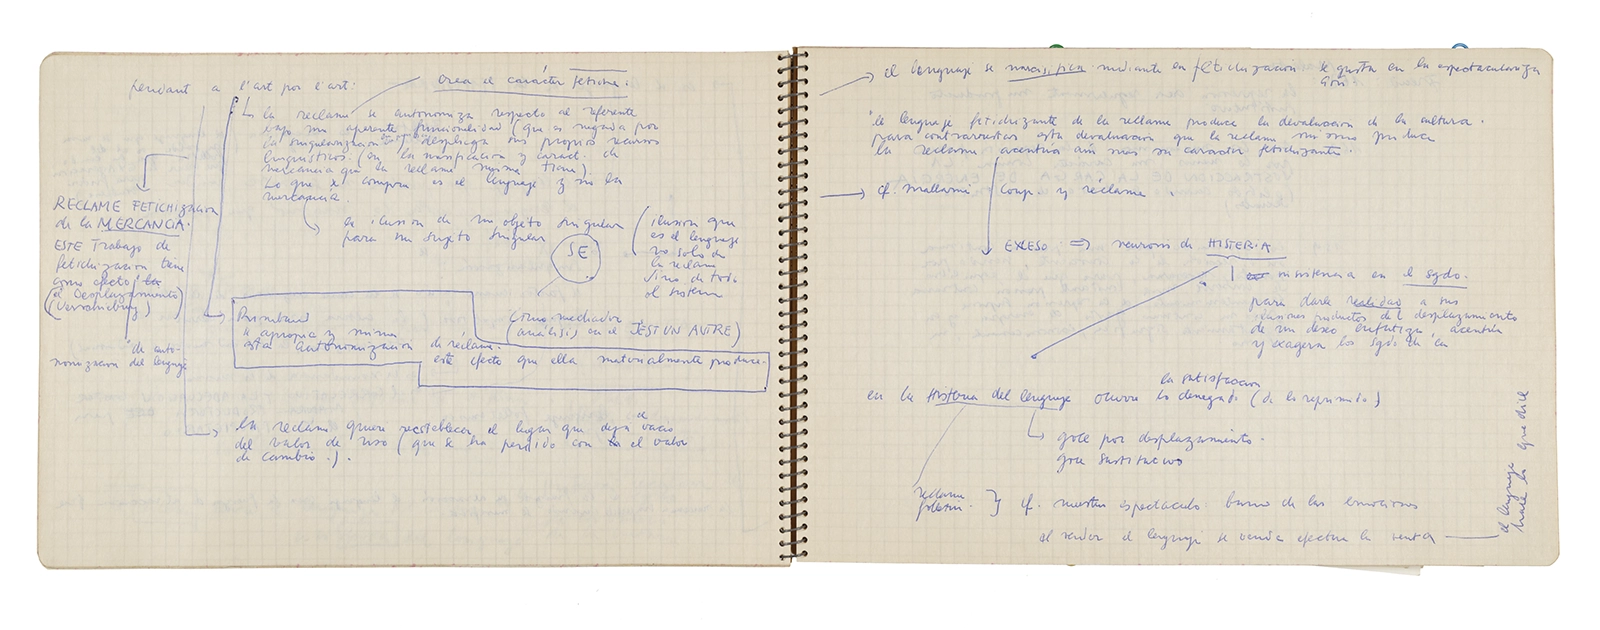 pendant a l'art por l'art:
crea el carácter fetiche.
la reclame se autonomiza respecto al referente
bajo una aparente funcionalidad (que es negada por
la singularización) despliega sus propios recursos
lingüísticos. (en la masificación y caract. de
mercancía que la reclame misma tiene).
Lo que se compra es el lenguaje y no la
mercancía.
la ilusión de un objeto singular
para un sujeto singular
SE
ilusión que
es el lenguaje
no solo de
la reclame
sino de todo
el sistema
RECLAME FETICHIZACION
de la MERCANCIA.
ESTE trabajo de
fetichización tiene
como efecto
(el Desplazamiento)
(Verschiebung)
de auto-
nomización del lenguaje
como mediador
(análisis en el JEST UN AUTRE)
Rimbaud
se apropia y mima
esta autonomización de reclame.
este efecto que ella materialmente produce.
la reclame quiere restablecer el lugar que deja vacío el
del valor de uso (que se ha perdido con el valor
de cambio.).
el lenguaje se mediante en fetichización se gusta en la espectacularización
'le lenguaje fetichizante de la reclame produce la devaluación de la cultura.
para contrarrestar esta devaluación que la reclame misma produce
la reclame acentúa aún más su carácter fetichizante.
cf. Mallarmé coup. y réclame.
EXCESO ⇒ neurosis de HISTERIA
insistencia en el sgdo.
para darle realidad a sus
ilusiones productos del desplazamiento
de un deseo enfatiza, acentúa
y exagera los sgdo.
la satisfacción
en la Histeria del lenguaje ocurre lo denegado (de lo reprimido)
goce por desplazamiento.
goce sustitutivo
reclame
} cf. nuestro espectáculo: de las emociones
al vender el lenguaje se vende efectúa la venta
el lenguaje
hace lo que dice